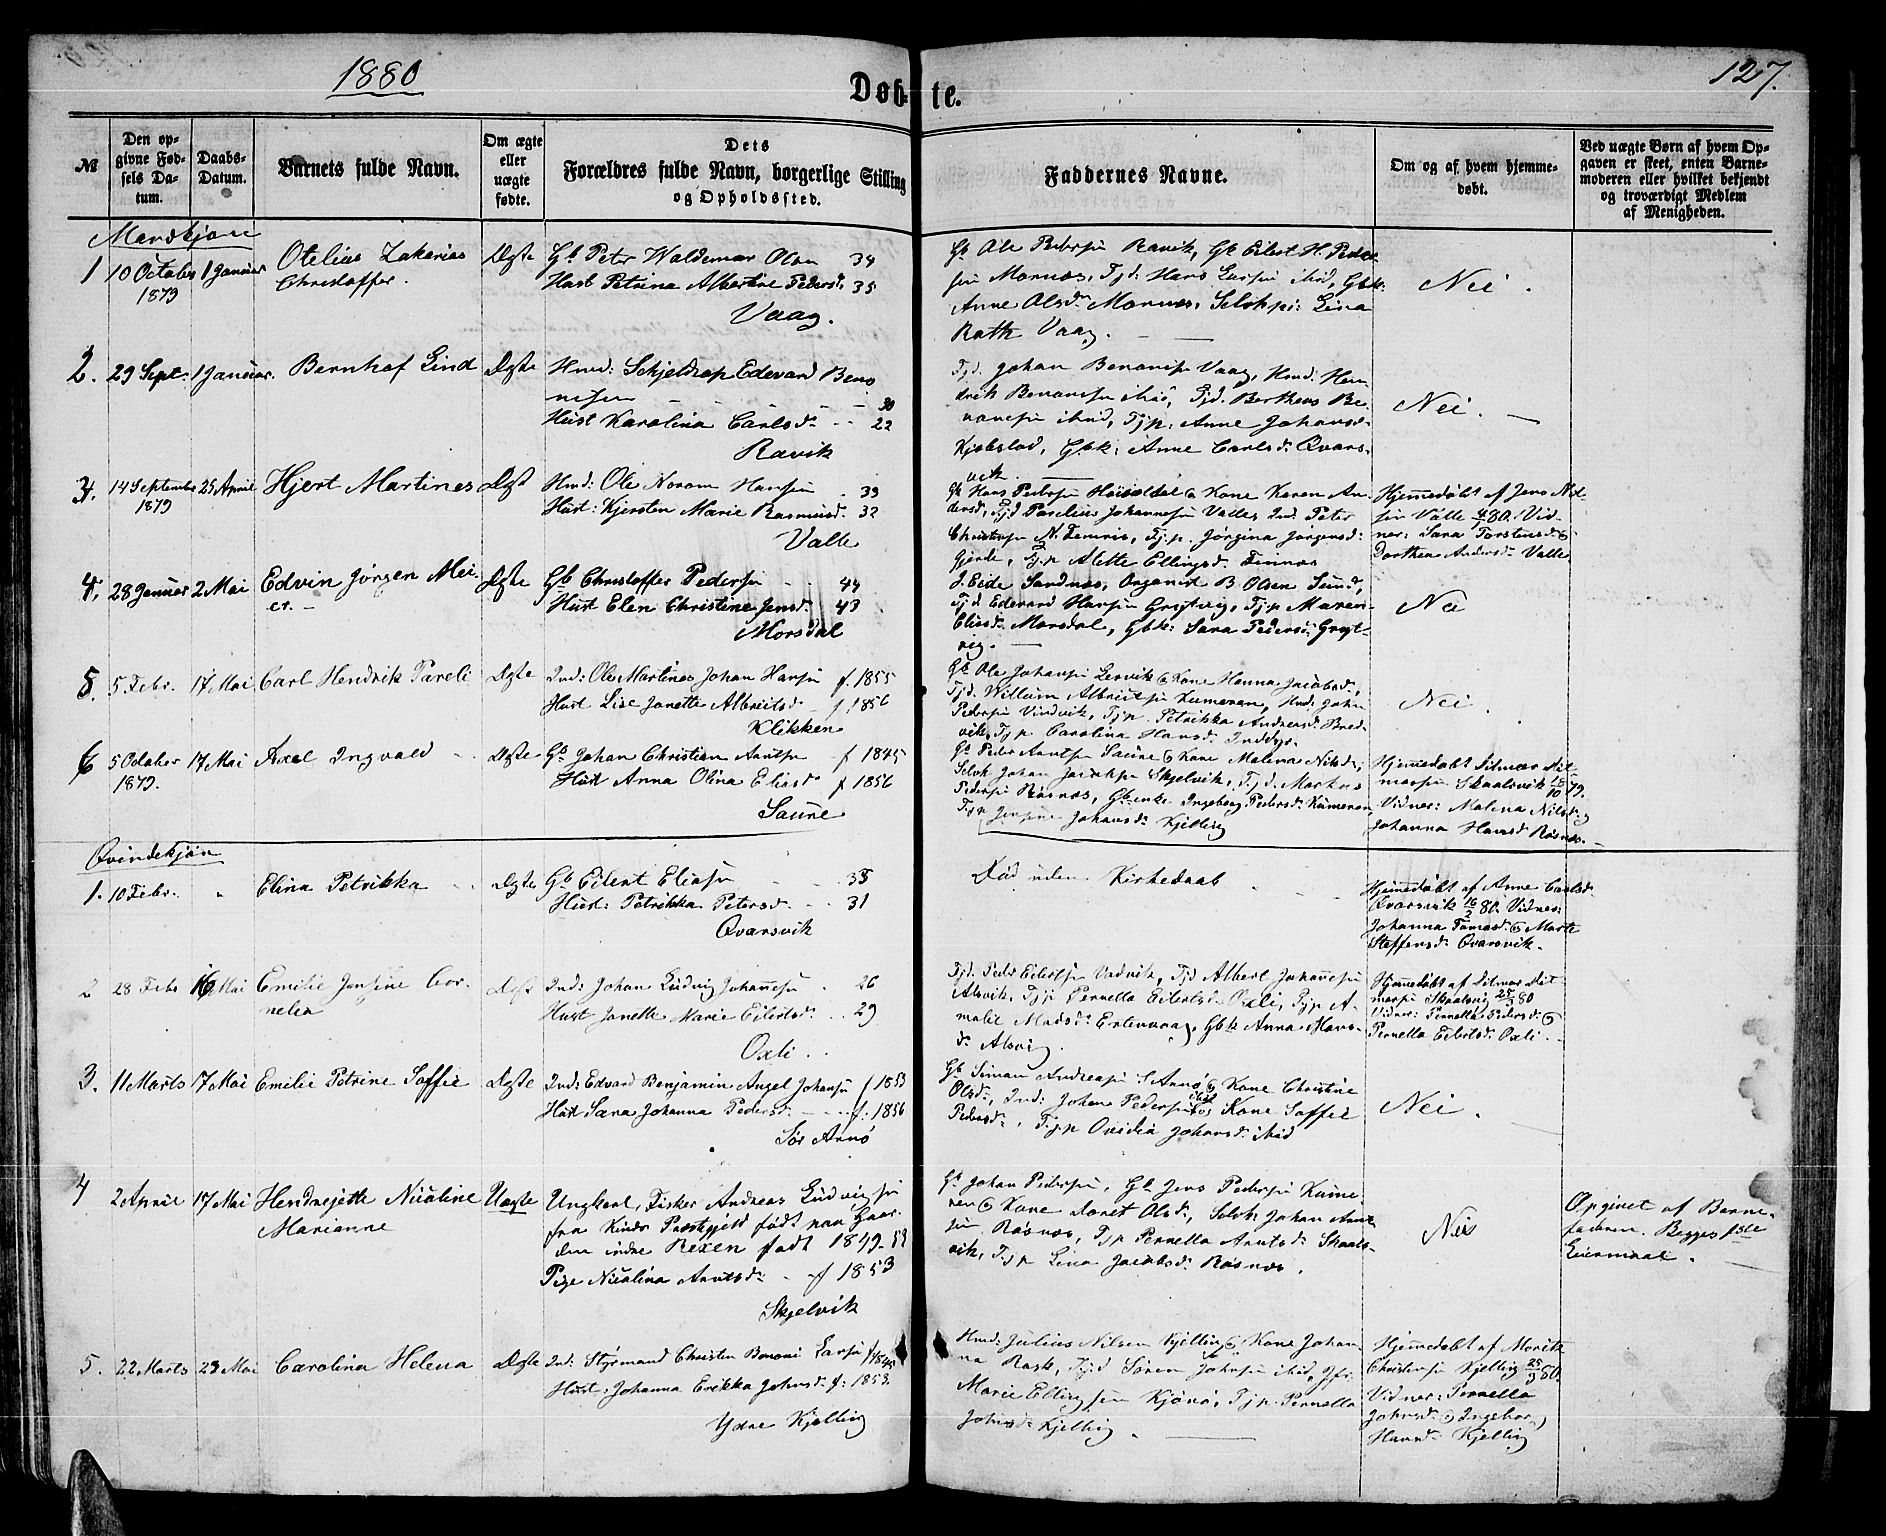 1880
Døbte.
127.
№
Den opgivne Fødsels Datum.
Daabs-Datum.
Barnets fulde Navn.
Om ægte eller uægte fødte.
Dets Forældres fulde Navn, borgerlige Stilling og Opholdssted.
Faddernes Navne.
Om og af hvem hjemmedøbt.
Ved uægte Børn af hvem Opgaven er skeet, enten Barnemoderen eller hvilket bekjendt og troværdigt Medlem af Menigheden.
Mandkjøn
1 10 October 1 Januar Otelius Zakarias Ægte Gb Peter Waldemar Olsen 34
1879 Christoffer. Hust Petrina Albertine Pedersd. 35
Vaag.
Gb Ole Pedersen Ravik, Gb Eilert H. Peder-
sen Mornæs, Tjd: Hans Larsen ibid, Gbk:
Anne Olsdr Mornæs, Selvh pi: Lina
Rath Vaag.
Nei.
2. 29 Sept. 1 Januar. Bernhof Lind Ægte Hmd: Schjeldrop Edevard Beno
nisen 30
Hust Karolina Carlsd. 22
Ravik
Tjd. Johan Benonisen Vaag, Hmd. Hen-
drik Benonisen ibid, Tjd. Bertheus Be-
nonisen ibid, Tjp. Anne Johansd.
Kjøbstad, Gbk: Anne Carlsd. Qvars-
vik.
Nei.
3. 14 September 25 April Hjert Martines Ægt Hmd: Ole Norom Hansen 39
1879 Hust: Kjersten Marie Rasmusd. 32
Valle
Gb Hans Pedersen Kone Karen An-
dersd, Tjd Paselius Johannesen Valle, Ind. Peter
Christophsen Tjp. Jørgina Jørgensd.
Gjerde, Tjp Alette Ellingsd. Finnes
Hjemmedøbt af Jens Niel-
sen Valle 4/1 80. Vid-
ner: Sara Torstensd. &
Dorthea Andersd. Valle
4. 28 Januar 2 Mai Edvin Jørgen Mei Ægte Gb Christoffer Pedersen 44
er. Hust Elen Christine Jensd. 43
Morsdal
J. Eide Sandnæs, Organist B Olsen Sund,
Tjd Edevard Hansen Grytvig, Tjp Maren
Eliasd. Morsdal, Gbk: Sara Pedersd. Gryt-
vig.
Nei
5. 5 Febr. 17 Mai Carl Hendrik Pareli Ægte Ind: Ole Martines Johan Hansen f. 1855
Hust Lise Janette Albrigtsd. f. 1856
Klikken
Gb Ole Johansen Kone Hanna Jacobsd.,
Tjd. Willum Albrigtsen Kumeran, Hmd: John
Pedersen Vindvik, Tjp. Petrikka Andreasd. Bred-
vik, Tjp Carolina Hansd. Inddyr.
Nei.
6 5 October 17 Mai Axel Ingvald Ægte Gb. Johan Christian Arntsen f 1845
1879. Hust Anna Olina Eliasd f 1856
Saure
Gb Peder Arntsen Saure & Kone Malena Nilsd.,
Selvh Johan Jacobsen Skjelvik, Tjd. Markus
Pedersen Røsnæs, Gb enke Ingeborg Pedersd. Kumeran,
Tjp Jensine Johansd. Kjelling
Hjemmedøbt Ditmar Dit-
marsen Skaalsvik 18/10 79.
Vidner: Malena Nilsd. &
Johanna Hansd Røsnæs.
Qvindekjøn
1. 10 Febr. " Elina Petrikka Ægte Gb Eilert Eliasen 35
Hust: Petrikka Petersd. 31
Qvarsvik
Død uden Kirkedaab
Hjemmedøbt af Anne Carlsd.
Qvarsvik 16/2 80. Vidner
Johanna Tomasd. & Marte
Steffensd. Qvarsvik.
2 28 Febr 16 Mai Emilie Jensine Cor- Ægt Ind: Johan Ludvig Johannesen 26
nelia Hust Janette Marie Eilertsd. 29
Oxli.
Tjd. Peder Eilertsen Vndvik, Tjd Albert Johannesen
Alsvik, Tjp Pernella Eilertsd. Oxli, Tjp A-
malie Madsd. Ertenvaag, Gbk Anna Hans-
d. Alsvig.
Hjemmedøbt af Ditmar Dit-
marsen Skaalsvig 25/3 80
Vidner: Pernella Pedersd. &
Pernella Eilertsd. Oxli.
3. 11 Marts 17 Mai Emilie Petrine Soffie Ægte Ind: Edvard Benjamin Angel Johansen f 1853
Hust Sara Johanna Pedersd. f. 1856
Sør Arnø
Gb Simon Andreasen S Arnø & Kone Christine
Olsd., Ind: Johan Pedersen ibid & Kone Soffie
Pedersd., Tjp Ovidia Johansd. ibid
Nei.
4 2 April 17 Mai Hendrejette Nicoline Uægte Ungkarl, Fisker Andreas Ludvigsen
Marianne fra Kinds Præstgjeld født paa Gaar-
den indre Rexen født 1849
Pige Nicolina Arntsd. f 1853
Skjelvik
Gb Johan Pedersen, Gb Jens Pedersen Kume-
ren & Kone Doret Olsd., Selvh: Johan Arnt-
sen Røsnæs, Tjp Pernella Arntsd. Skaals-
vik, Tjp Lina Jacobsd. Røsnæs.
Nei
Opgivet af Barne-
faderen. Begges 1ste
Leiermaal.
5. 22 Marts 23 Mai Carolina Helena Ægte Ind: Styrmand Christen Benoni Larsen f 1845
Hust: Johanna Erikka Johnsd. f: 1853.
Ydre Kjelling
Hmd: Julius Nilsen Kjelling & Kone Johan
na Rask, Tjd Søren Johnsen ibid, Jfr.
Marie Ellingsen Kjønø, Tjp. Pernella
Johnsd. Kjelling.
Hjemmedøbt af Morits
Christensen Kjelling 25/3 80.
Vidner: Pernella
Johnsd. & Ingeborg
Hansd. Kjelling